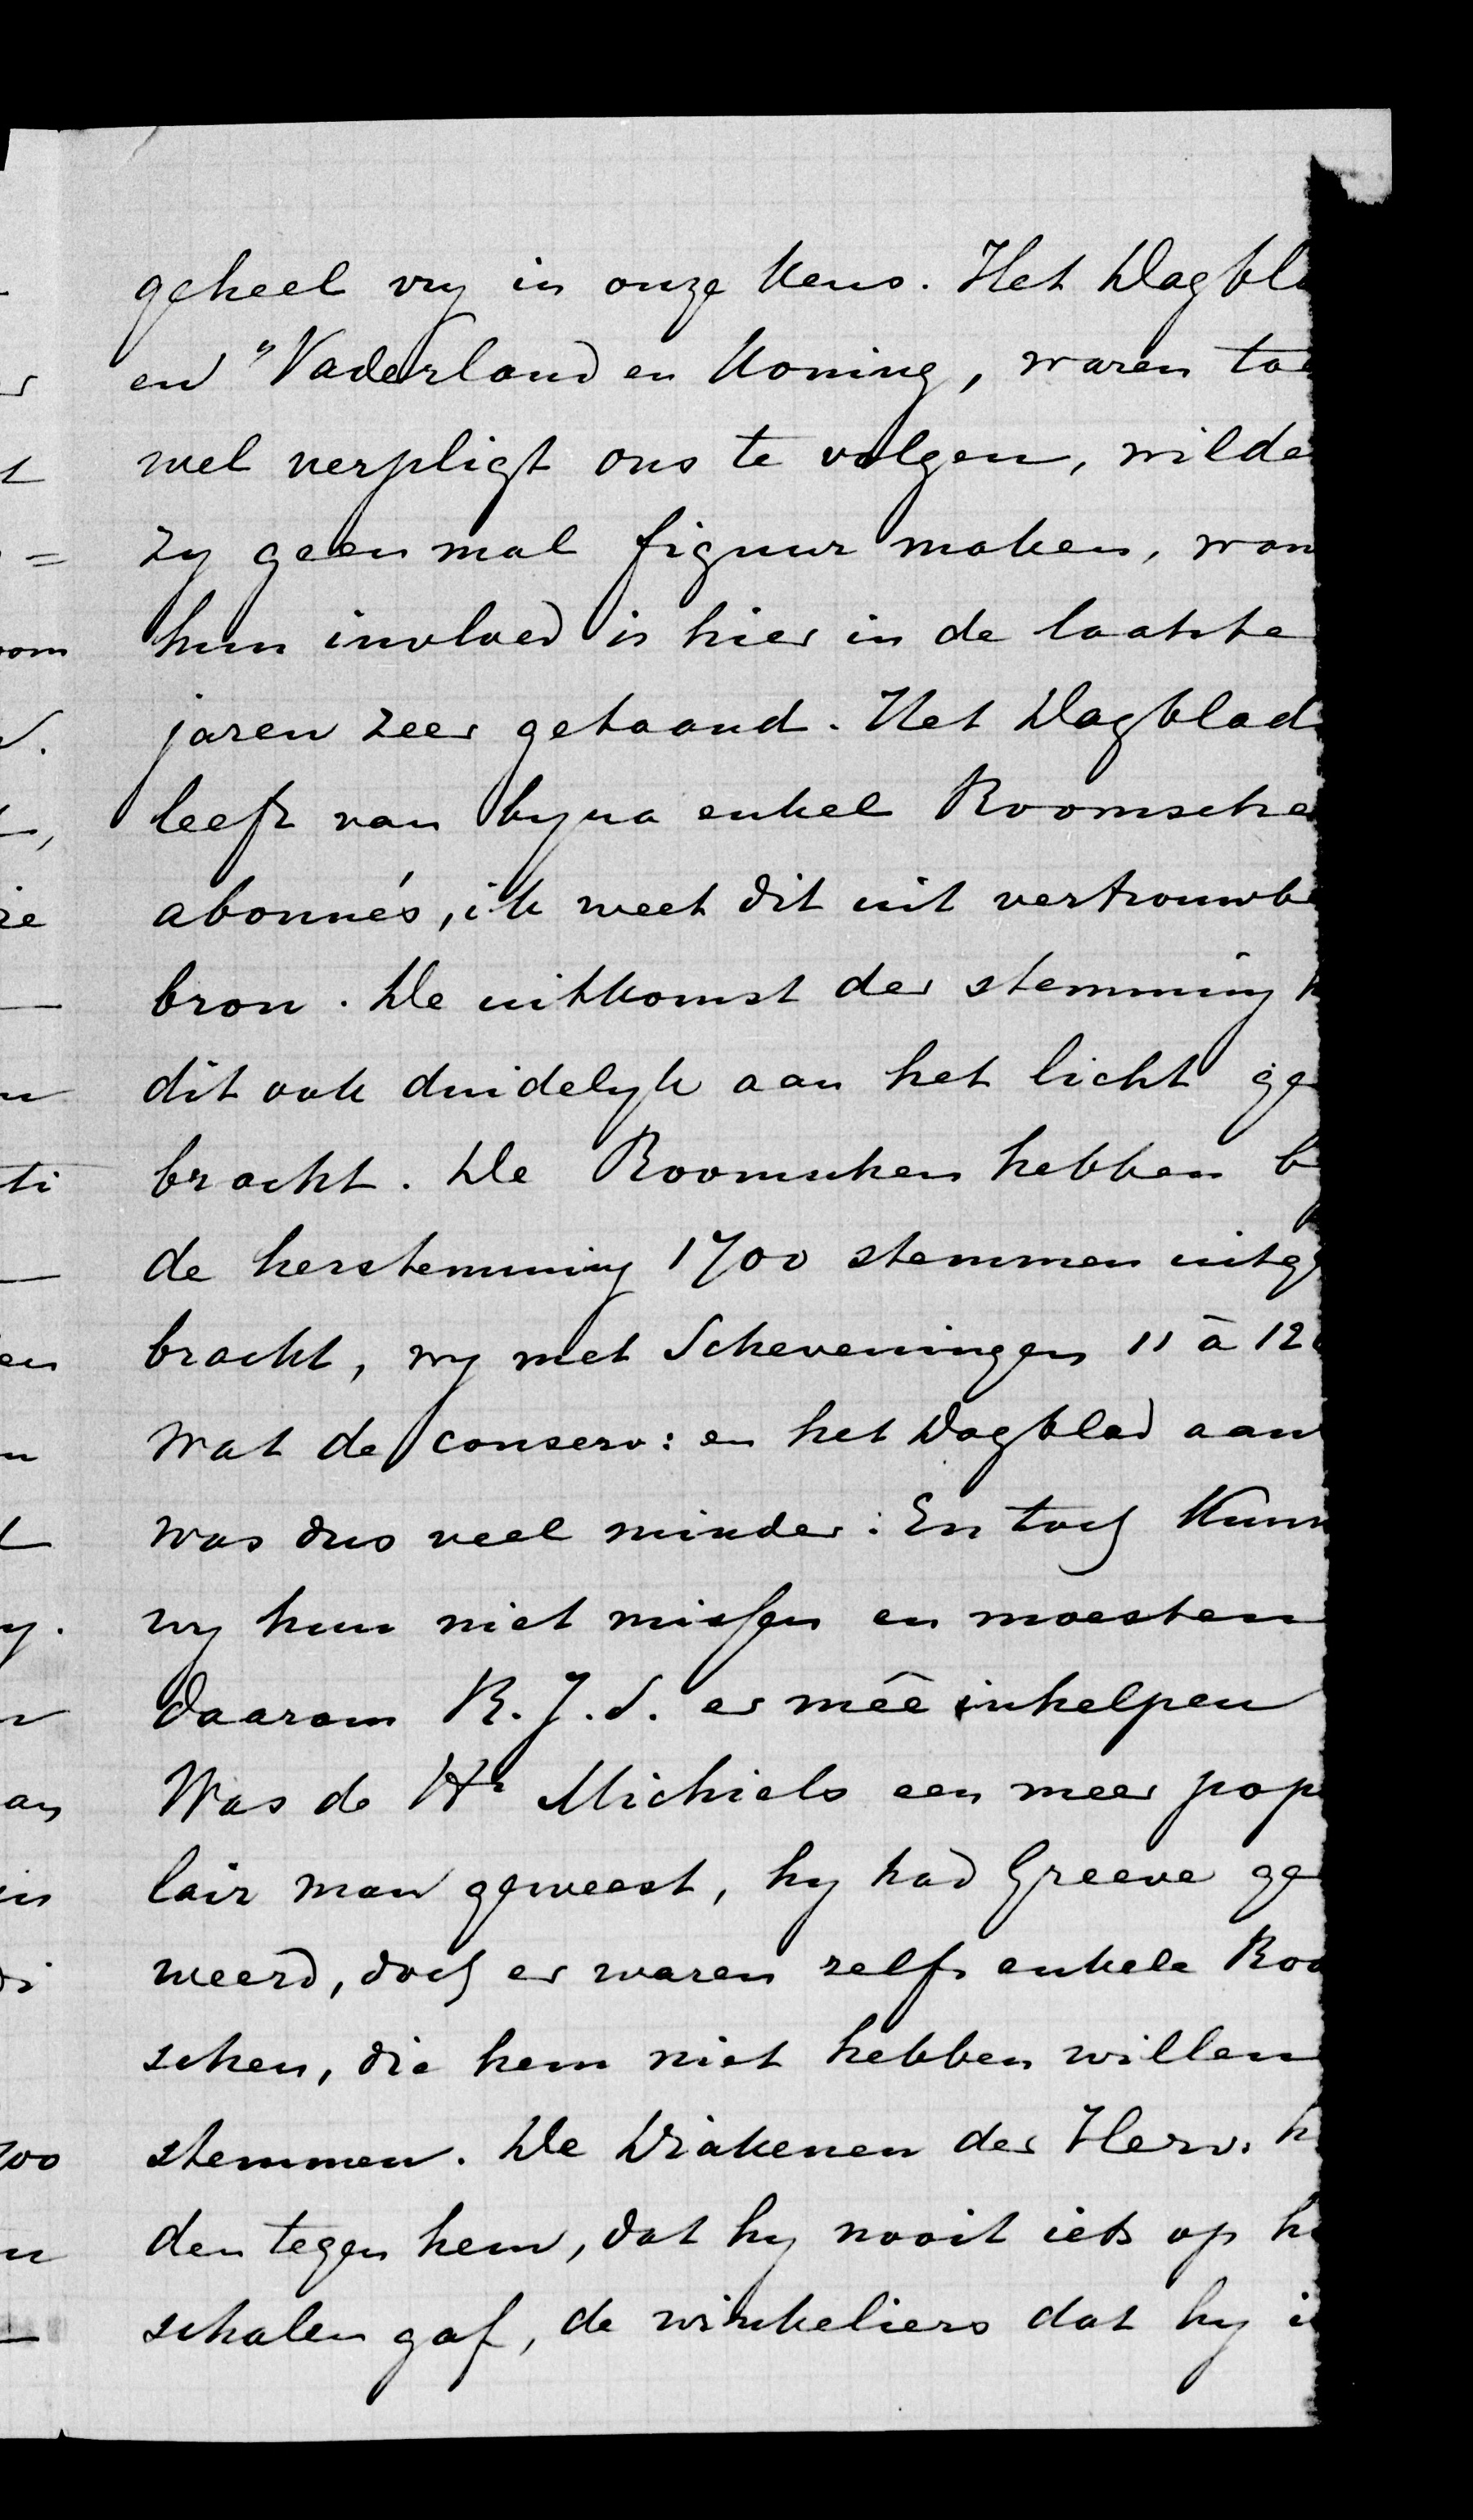 geheel vry in onze keus. Het Dagbl
en "Vaderland en Koning, waren toe
wel verpligt ons te volgen, wilde
zy geen mal figuur maken, wan
hun invloed is hier in de laatste
jaren zeer getaand. Het Dagblad
leeft van byna enkel Roomsche
abonnés, ik weet dit uit vertrouwb
bron. De uitkomst der stemming h
dit ook duidelyk aan het licht ge
bracht. De Roomschen hebben b
de herstemming 1700 stemmen uitge
bracht, wy met Scheveningen 11 à 12
Wat de conserv: en het Dagblad aan
was dus veel minder. En toch kunn
wy hun niet missen en moesten
daarom R.J.S. er mêe inhelpen
Was de Hr Michiels een meer pop
lair man geweest, hy had Greeve ge
weerd, doch er waren zelfs enkele Roo
schen, die hem niet hebben willen
stemmen. De Diakenen der Herv. h
den tegen hem, dat hy nooit iets op h
schalen gaf, de winkeliers dat hy i